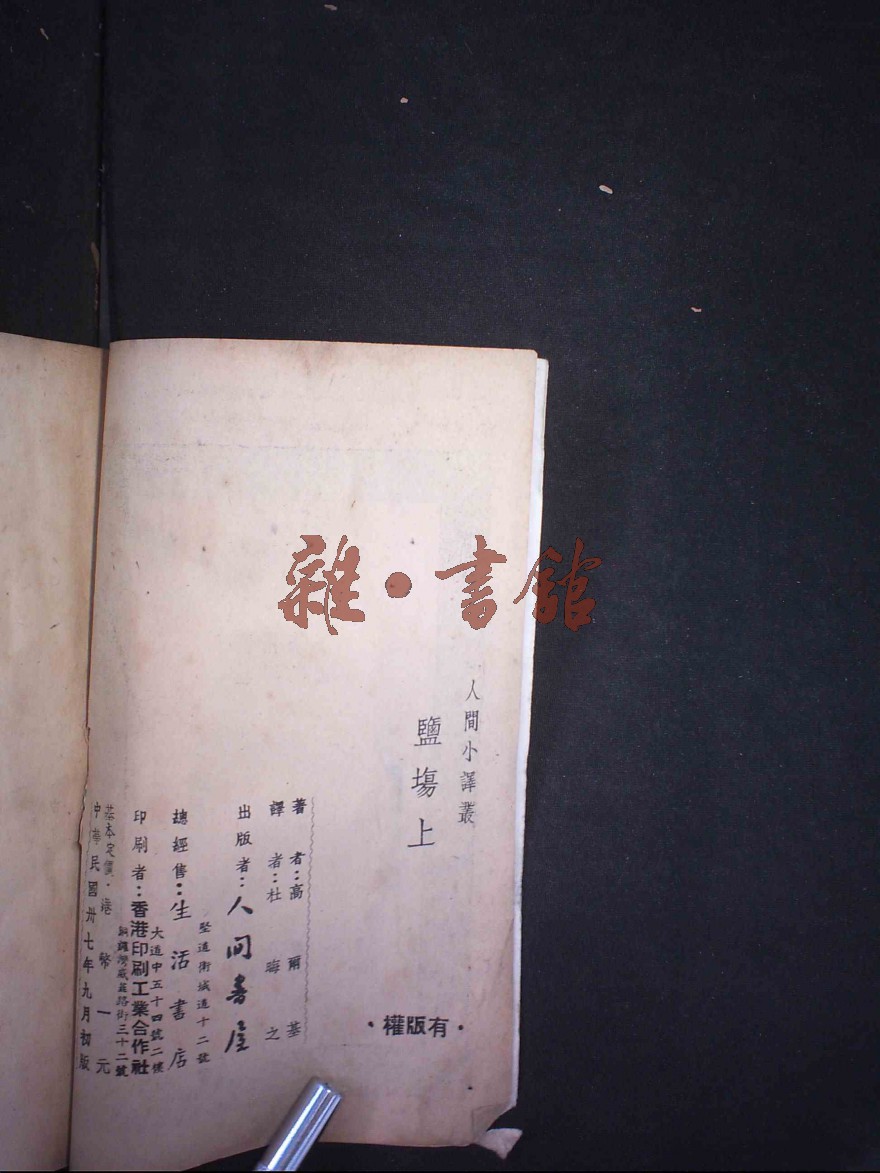 雜·書館
人間小譯叢
鹽場上
·有版權·
著者：高爾基
譯者：杜晦之
出版者：人间書屋
堅道街城道十二號
總經售：生活書店
大道中五十四號二樓
印刷者：香港印刷工業合作社
銅鑼灣威菲路街三十二號
基本定價·港幣一元
中華民國卅七年九月初版